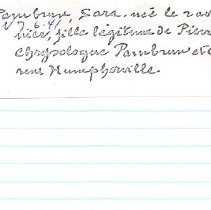 Pambrun, Sara. née le
V 7.6.41
fille légitime de Pierre
Chrysologue Pambrun et de
Humphoville.